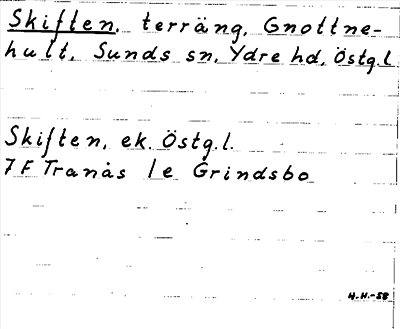 Skiften, terräng, Gnottne-
hult, Sunds sn, Ydre hd, Östg.l.
Skiften, ek. Östg.l.
7 F Tranås 1e Grindsbo
H.H.-58